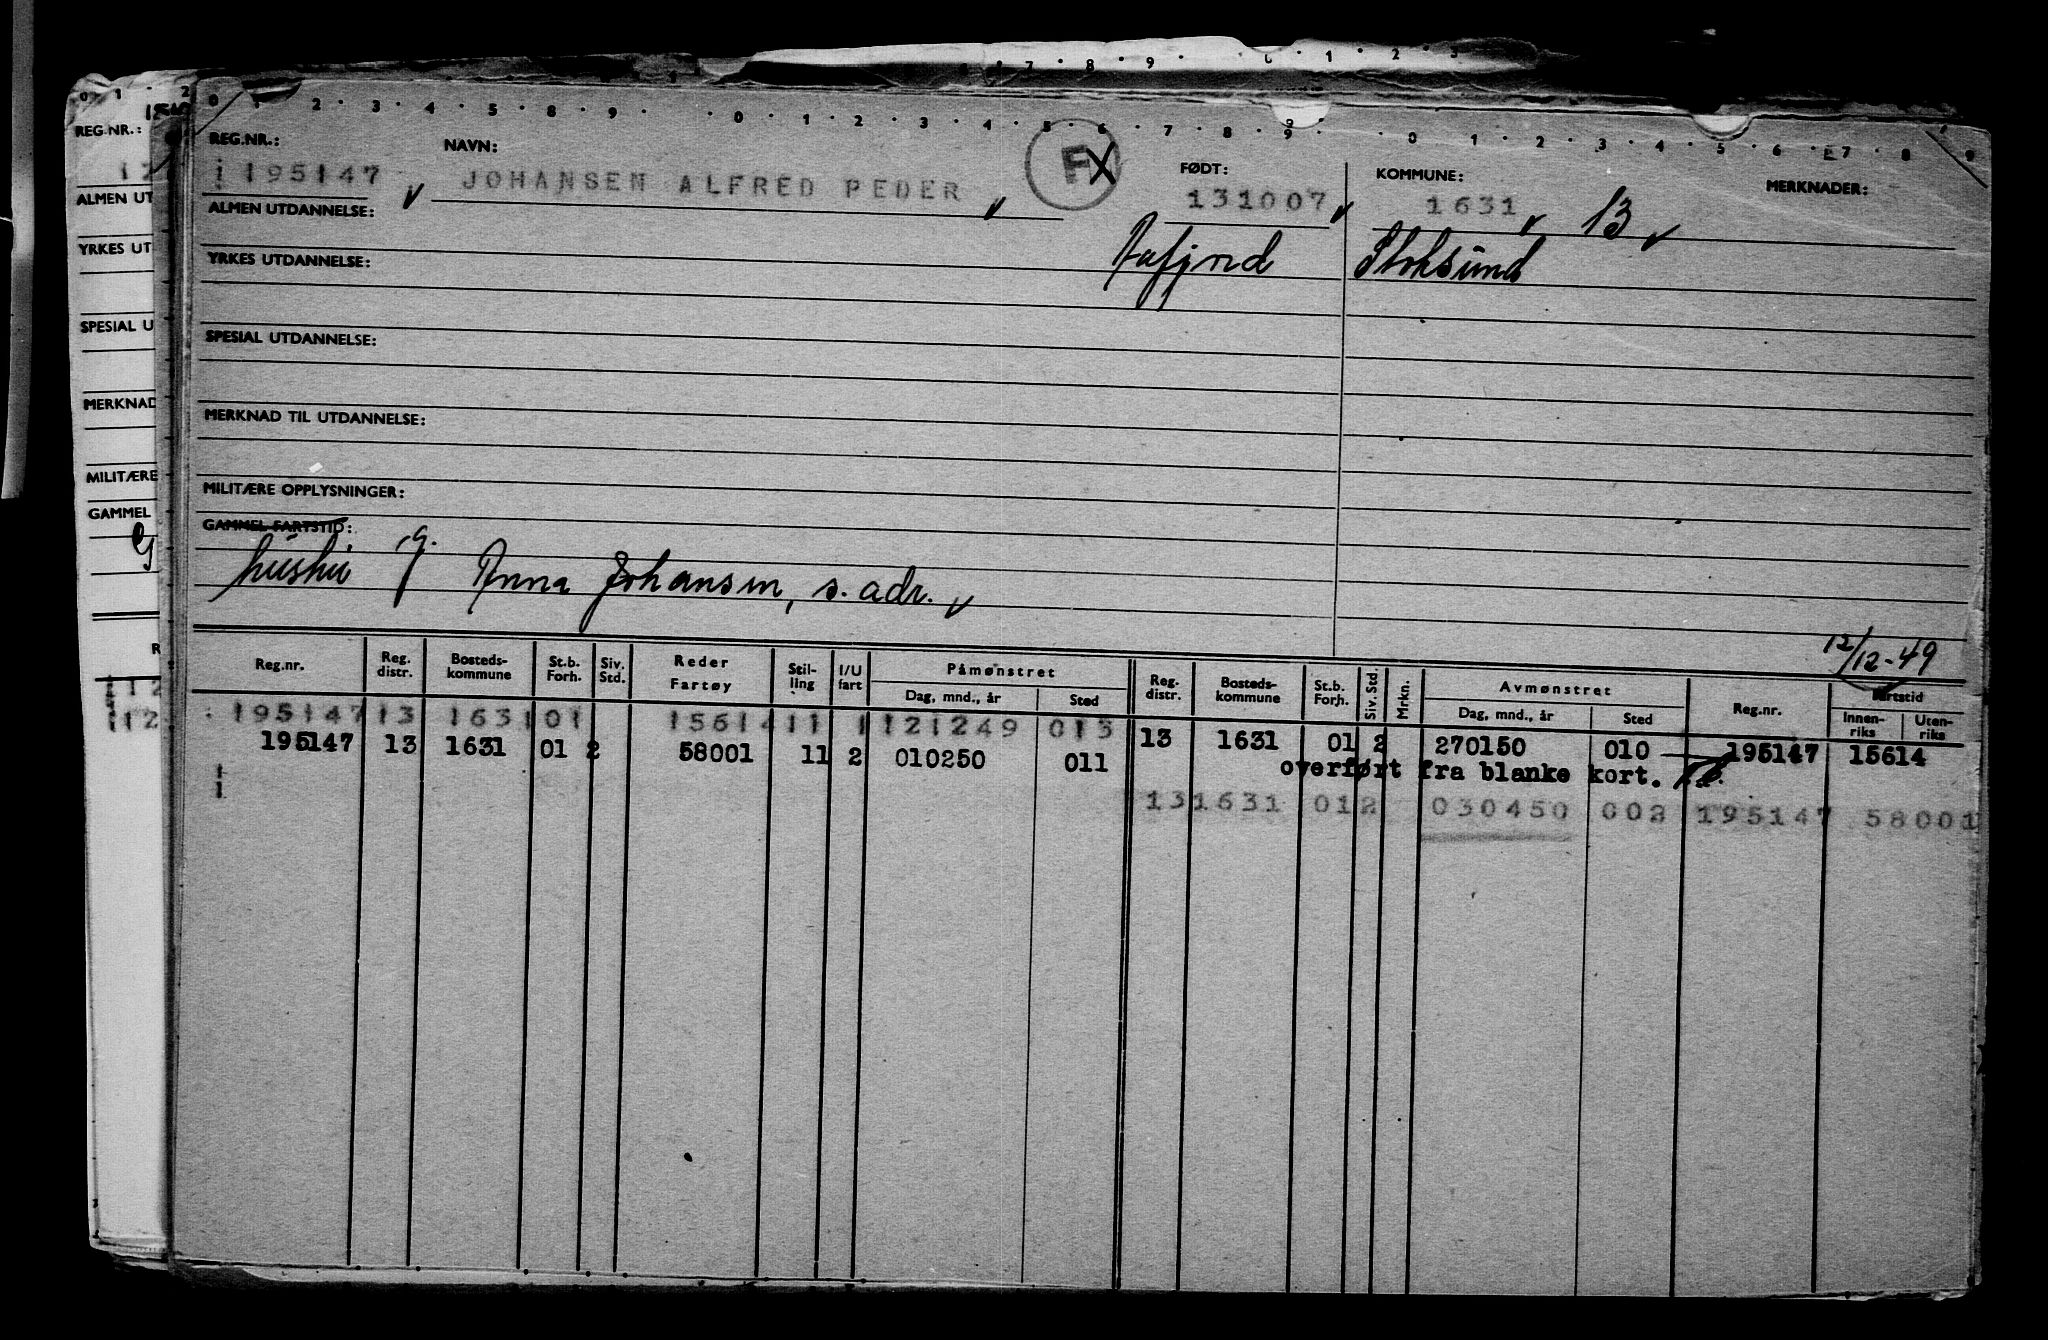 0 1 2 3 4 5 8 9 0 1 2 3 4 5 6 7 8 9 0 1 2 3 4 5 6 7 8 9
REG.NR.: NAVN: FØDT: KOMMUNE: MERKNADER:
195147 JOHANSEN ALFRED PEDER F 131007 1631 13
ALMEN UTDANNELSE:
Stoksund
YRKES UTDANNELSE:
SPESIAL UTDANNELSE:
MERKNAD TIL UTDANNELSE:
MILITÆRE OPPLYSNINGER:
GAMMEL FARTSTID:
Anna Johansen, s. adr.
12/12-49
Reg.nr. Reg. distr. Bosteds-kommune St.b. Forh. Siv. Std. Reder Fartøy Stil-ling I/U fart Påmønstret Dag, mnd., år Sted Reg. distr. Bosteds-kommune St.b. Forh. Siv. Std. Mrkn. Avmønstret Dag, mnd., år Sted Reg.nr. Fartstid Innen-riks Uten-riks
195147 13 1631 01 15614 11 1 121249 013 13 1631 01 2 270150 010 195147 15614
195147 13 1631 01 2 58001 11 2 010250 011
overført fra blanke kort.
13 1631 01 2 030450 002 195147 58001
REG.NR.:
ALMEN UT
YRKES UT
SPESIAL U
MERKNAD
MILITÆRE
GAMMEL